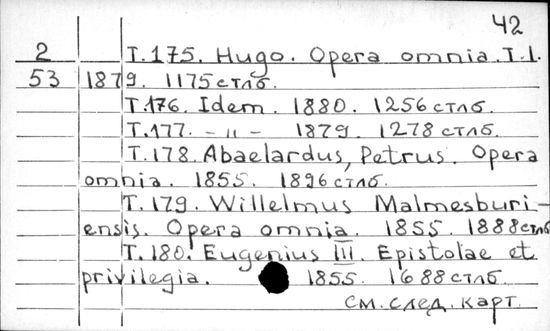 42
2 Т.175. Hugo. Opera omnia. T.1.
53 1879. 1175 стлб.
Т.176. Idem. 1880. 1256 стлб.
Т.177. – " – 1879. 1278 стлб.
Т.178. Abaelardus, Petrus. Opera
omnia. 1855. 1896 стлб.
Т.179. Willelmus Malmesburi-
ensis. Opera omnia. 1855. 1888 стлб
Т.180. Eugenius III. Epistolae et
privilegia. 1855. 1688 стлб.
См. след. карт.